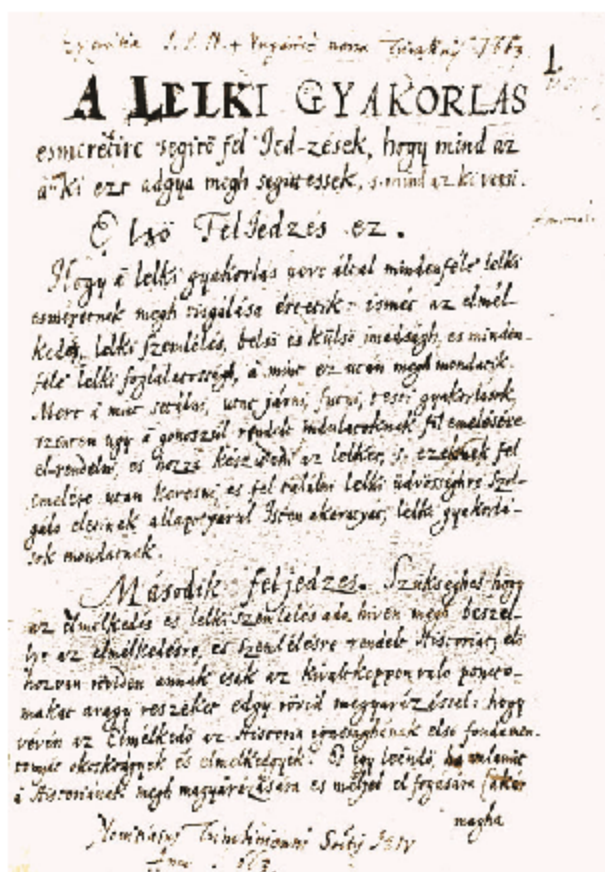 1.
A LELKI GYAKORLAS
esmeretire segitö fel Jed-zések, hogy mind az
a ki ezt adgya megh segittessek, s. mind az ki veszi.
Első FelJedzés ez.
Hogy á lelki gyakorlás nevе által mindenféle lelki
esméretnek megh visgálása értetik: ismét az elmél-
kedés, lelki szemlélés, belső es külső imádságh, es minden-
féle lelki foglalatosságh, á mint ez utan megh mondatik.
Mert á mint sétálni, utat járni, futni, testi gyakorlások,
szinten ugy á gonoszúl rendelt indulatoknak fel emelésére
el-rendelni, es hozzá készíteni az lelket, s. ezeknek fel
emelése utan keresni, es fel találni lelki üdvösséghre szol-
gáló életinek állapattyárúl Isten akarattyát, lelki gyakorlá-
sok mondatnak.
Második feljedzes. Szükséghes hogy
az elmélkedés es lelki szemlélés adó hiven megh beszél-
lye az elmélkedésre, es szemlélésre rendelt Historiat, elő
hozván röviden annak csak az kiváltképpen való poncto-
makat avagy részeket edgy rövid megyarázással: hogy
vévén az Elmélkedő az Historia igazsághának első fondamen-
tomát okoskodgyék és elmélkedgyék. Es igy leéndő, ha valamit
á Historiának megh magyarázására es mélyeb el fogására (akár
magha